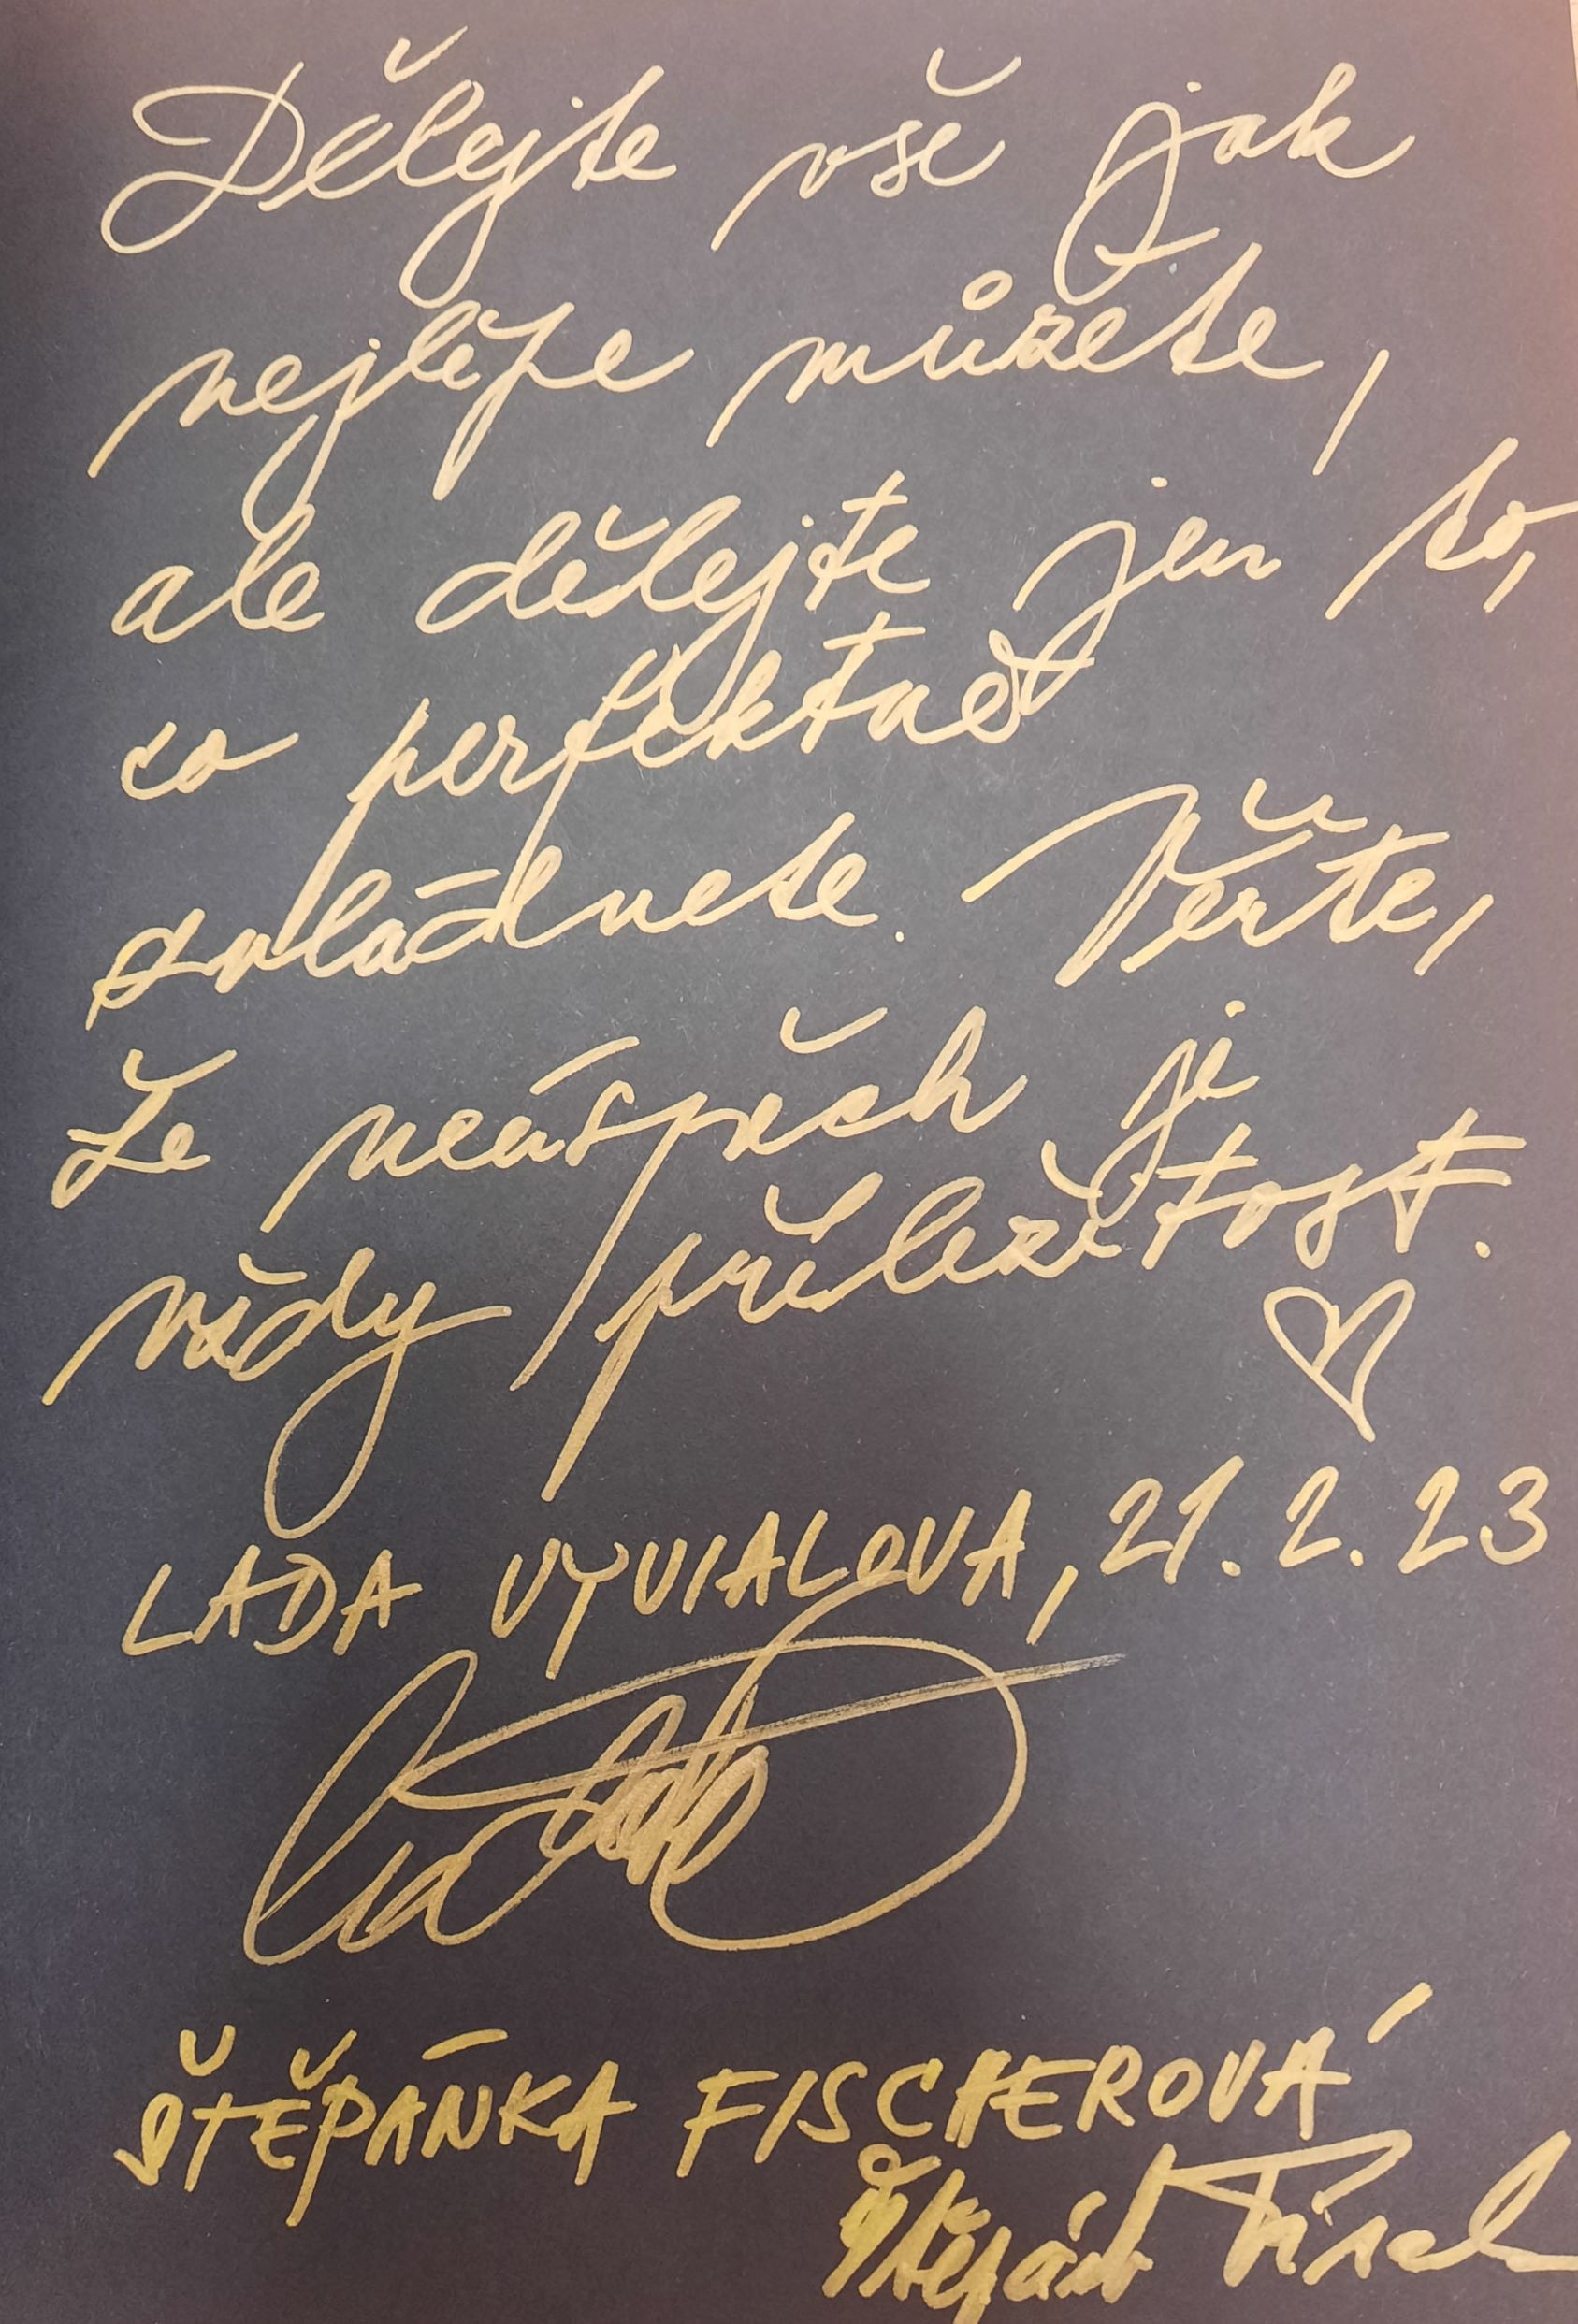 Dělejte vše jak
nejlépe můžete,
ale dělejte jen to,
co perfektně
zvládnete. Věřte,
že neúspěch je
vždy příležitost.
LADA VYVIALOVA, 21. 2. 23
ŠTĚPÁNKA FISCHEROVÁ